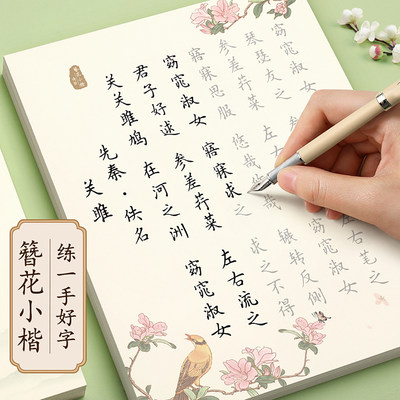 关雎
先秦·佚名
关关雎鸠
在河之洲
君子好逑
窈窕淑女
参差荇菜
窈窕淑女
左右流之
寤寐求之
寤寐思服
参差荇菜
窈窕淑女
琴瑟友之
悠哉
求之不得
辗转反侧
窈窕淑女
簪花小楷
练一手好字